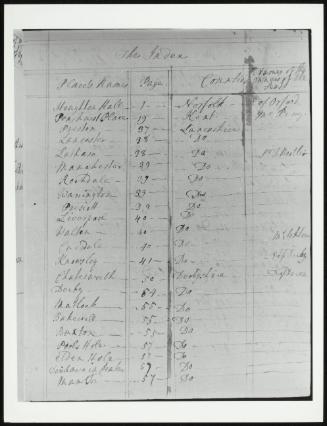 The Index
Places Names Page Counties Names of the Owners of the Seats
Houghton Hall 1 Norfolk E of Orford
Penshurst Place 19 Kent Mr Perry
Preston 37 Lancashire
Lancaster 38 Do
Latham 38 Do
Manchester 39 Do
Rochdale 39 Do
Warrington 39 Do
Prescott 39 Do
Liverpool 40 Do
Walton 40 Do
40 Do
Knowsley 41 Do
Chatsworth 50 Derbyshire
Derby 54 Do
Matlock 55 Do
Bakewell 55 Do
Buxton 55 Do
Pools Hole 57 Do
Elden Hole 57 Do
57 Do
Mam Tor 57 Do